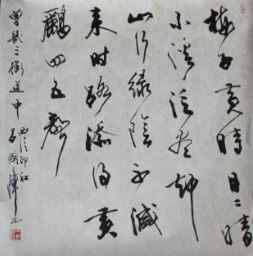 梅子黄時日日晴
小溪泛盡却
山行綠陰不減
来時路添得黄
鸝四五聲
曾幾三衢道中
西泠印社